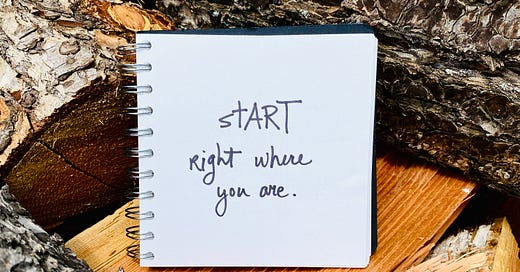 stART
right where
you are.